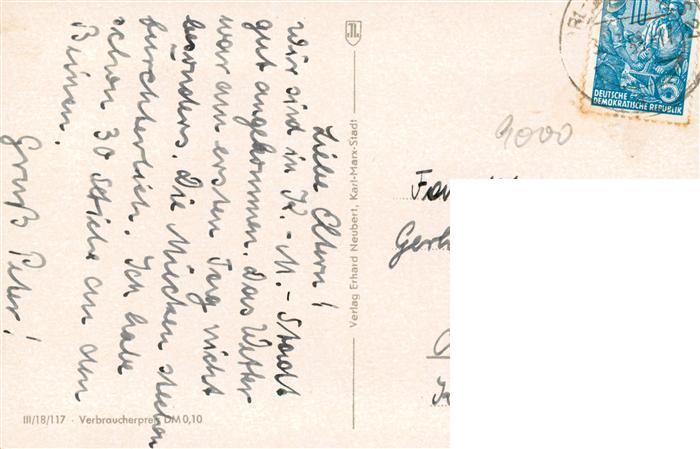 Liebe Eltern!
wir sind in K.-M.-Stadt
gut angekommen. Das Wetter
war am ersten Tag nicht
besonders. Die Mücken stechen
furchterlich. Ich habe
schon 30 Stiche an den
Beinen.
Gruß Peter!
Verlag Erhard Neubert, Karl-Marx-Stadt
III/18/117 · Verbraucherpreis DM 0,10
10
DEUTSCHE
DEMOKRATISCHE REPUBLIK
9000